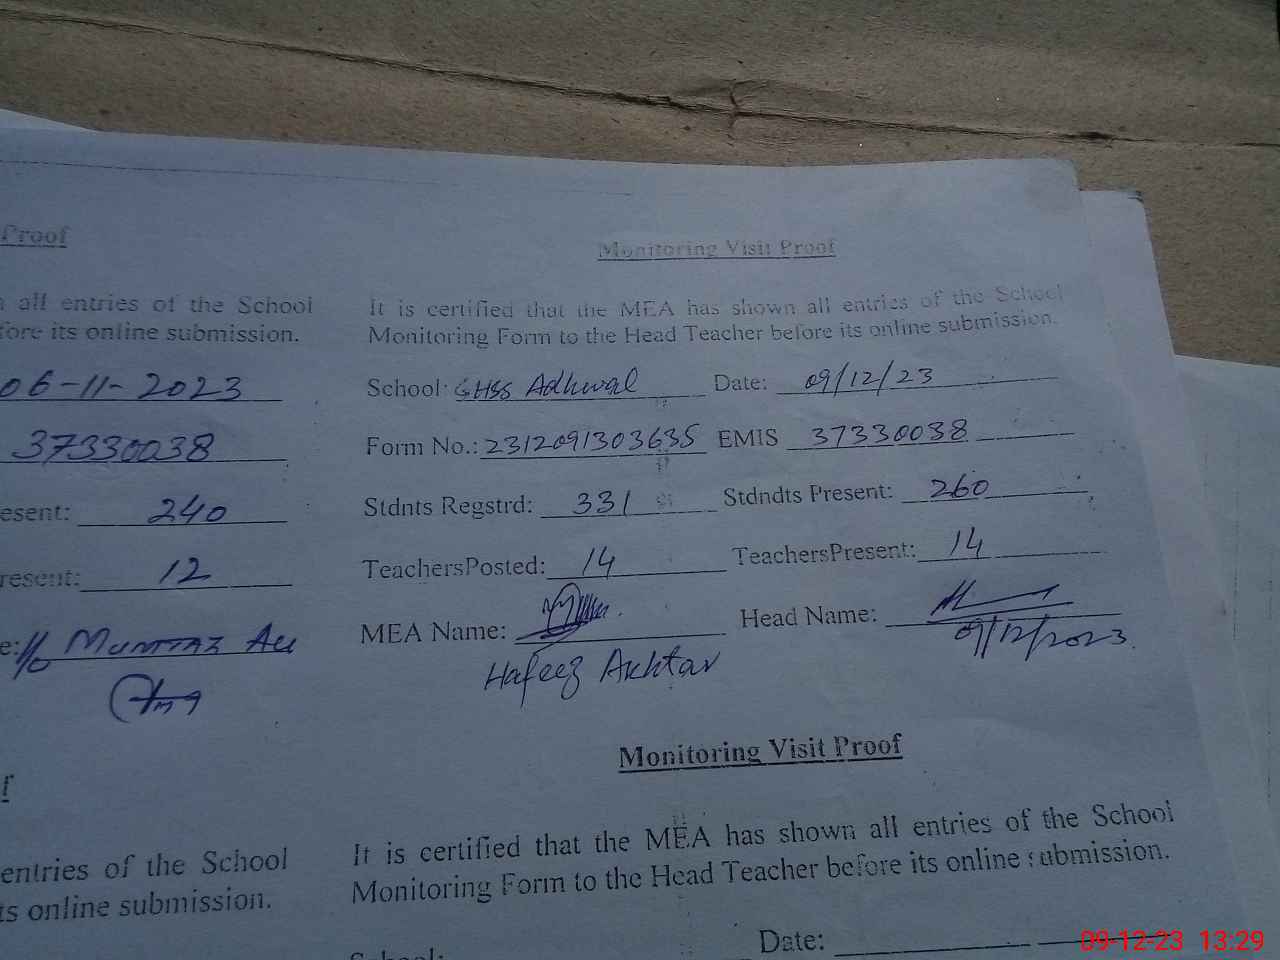 Proof
all entries of the School
fore its online submission.
06-11-2023
37330038
esent: 240
resent: 12
e: Mumtaz Ali
Monitoring Visit Proof
It is certified that the MEA has shown all entries of the School
Monitoring Form to the Head Teacher before its online submission.
School: GHSS Adhwal Date: 09/12/23
Form No.: 2312091303635 EMIS 37330038
Stdnts Regstrd: 331 Stdndts Present: 260
TeachersPosted: 14 TeachersPresent: 14
MEA Name: Head Name:
Hafeez Akhtar 09/12/2023
f
entries of the School
ts online submission.
Monitoring Visit Proof
It is certified that the MEA has shown all entries of the School
Monitoring Form to the Head Teacher before its online submission.
School: Date:
09-12-23 13:29